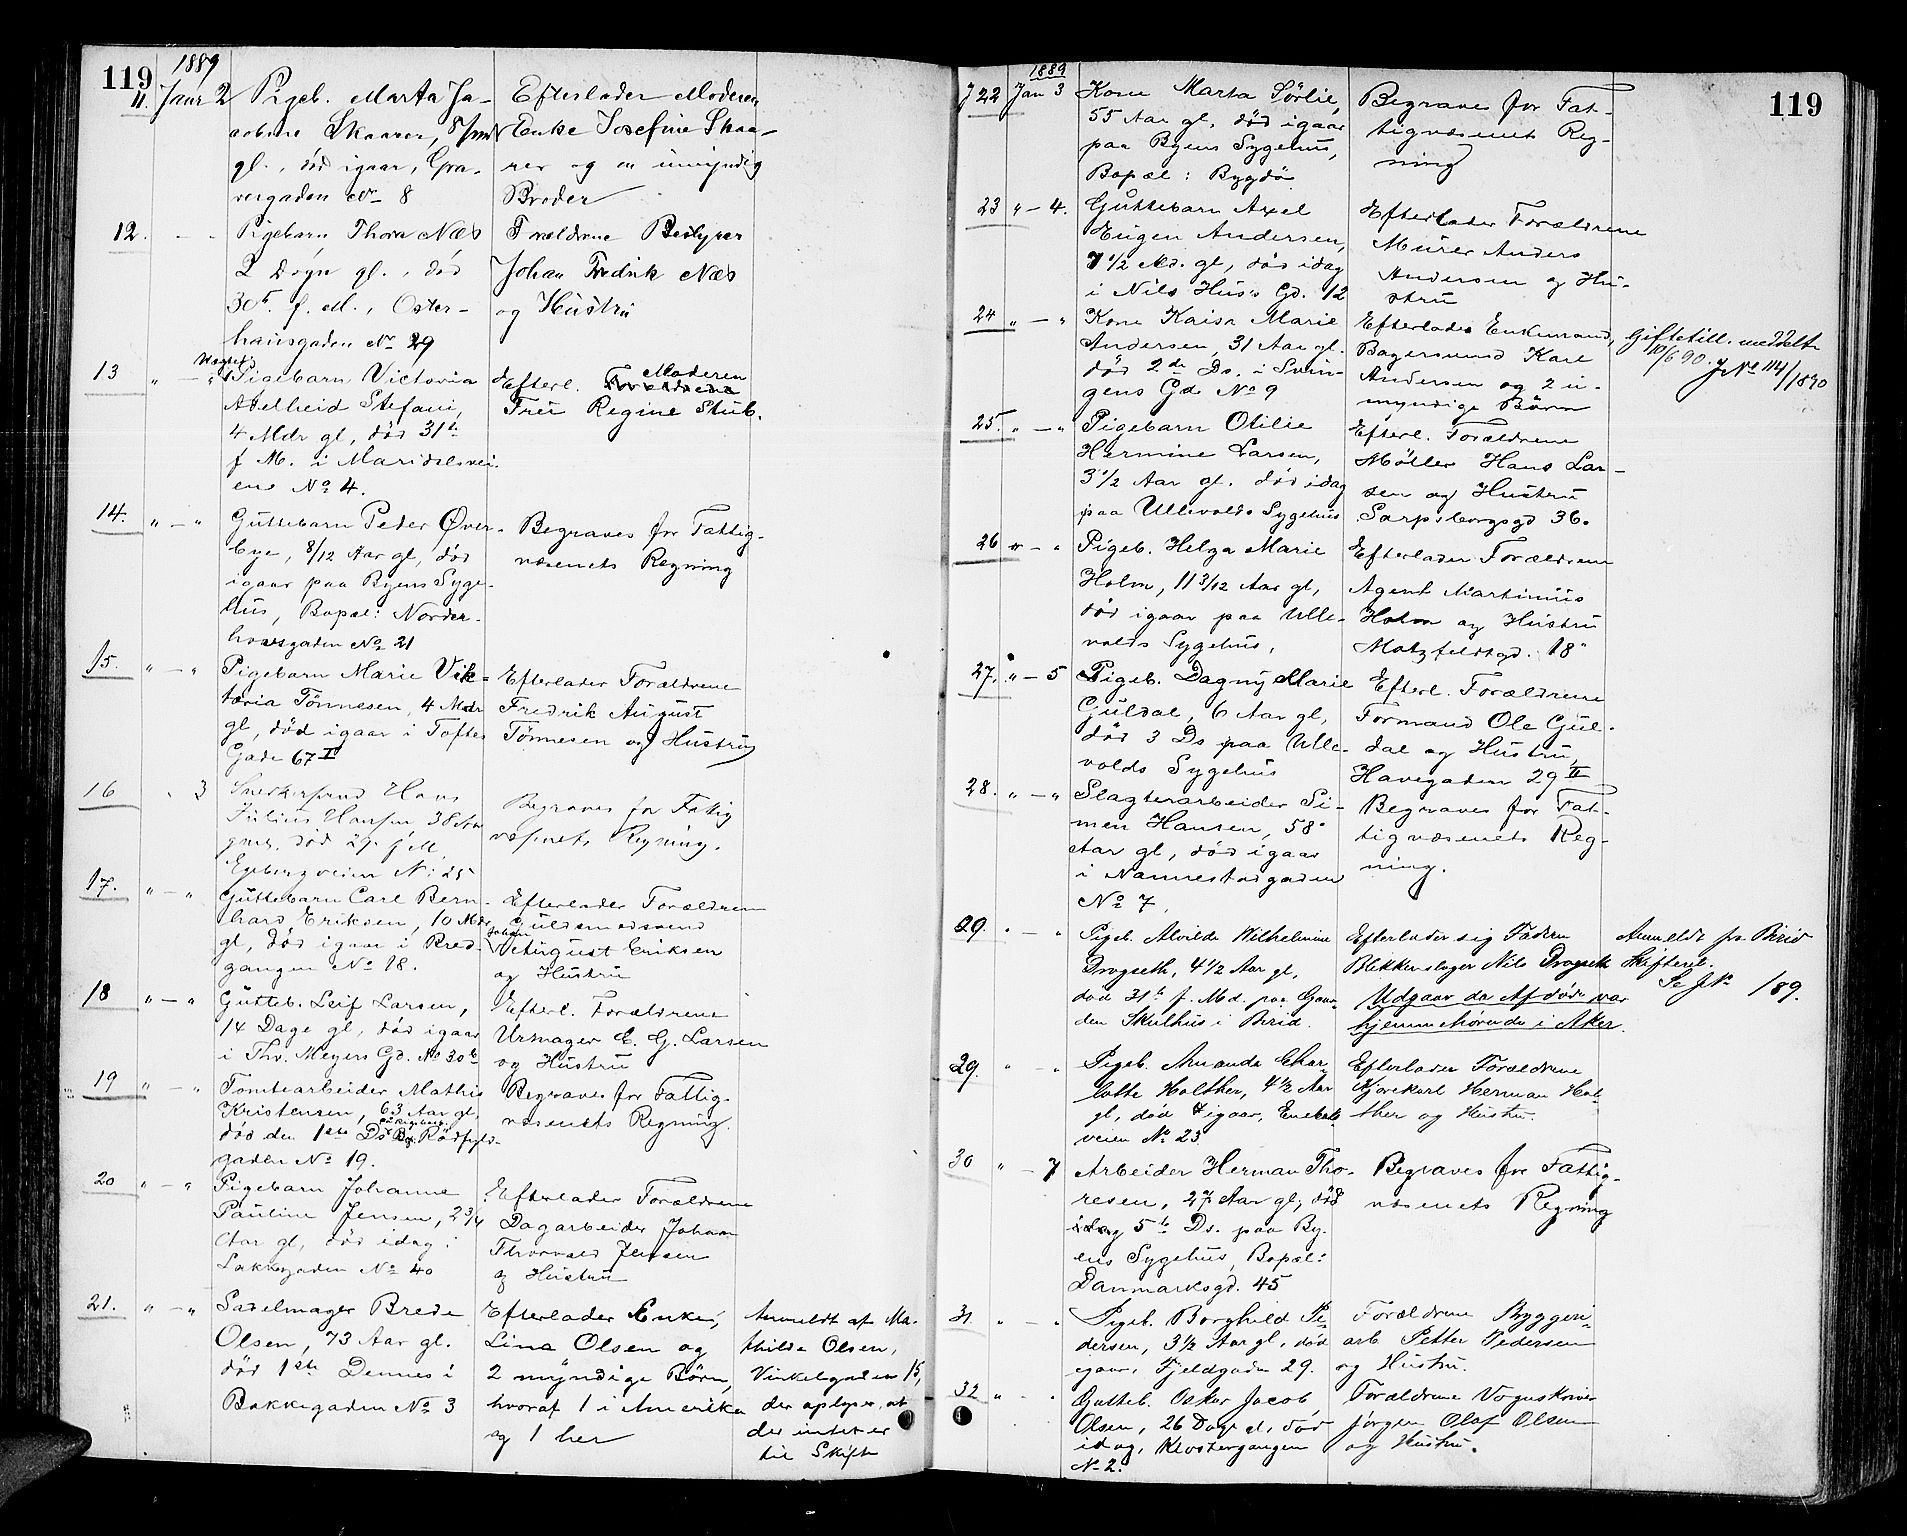 119
1889
11. Janr 2 Pigeb. Marta Ja-
cobine Skaarer, 8/ms
gl., död igaar, Gra-
vergaden No 8
Efterlader Moderen
Enke Josefine Skaa-
rer og en umyndig
Broder
12. Pigebarn Thora Næs
2 Døgn gl., død
30te f. M., Oster-
hausgaden No 29
Forældrene Bestyrer
Johan Fredrik Næs
og Hustru
13 " — " Pigebarn Victoria
Adelheid Stefani,
4 Mdr gl, död 31te
f M. i Maridalsvei-
ene No 4.
Efterl. Forældrene Moderen
Frü Regine Stub.
14. " — " Guttebarn Peder Över-
bye, 8/12 Aar gl, död
igaar paa Byens Syge-
hus, Bopæl: Norder-
hovsgaden No 21
Begraves for Fattig-
væsenets Regning
15. " — " Pigebarn Marie Vik-
toria Tönnesen, 4 Mdr
gl, död igaar i Toftes
Gade 67 II
Efterlader Forældrene
Fredrik August
Tönnesen og Hustru
16 " 3 Snekkersvend Hans
Julius Hansen 38 Aar
gml. död 29. f. M.
Egebergveien No 25
Begraves for Fattig
væsenets Regning.
17. " — " Guttebarn Carl Bern-
hard Eriksen, 10 Mdr
gl, död igaar i Bred-
gangen No 18.
Efterlader Forældren
Guldsmedsvend
Johan August Eriksen
og Hustru
18 " — " Gutteb. Leif Larsen,
14 Dage gl, död igaar
i Thv. Meyers Gd. No 30b
Efterl. Forældrene
Urmager E. G. Larsen
og Hustru
19 " — " Tomtearbeider Mathis
Kristensen, 63 Aar gl.
död den 1ste Ds Rödfyld-
gaden No 19.
Begraves for Fattig-
væsenets Regning.
20 " — " Pigebarn Johanne
Pauline Jensen, 2 3/4
Aar gl, död idag i
Lakkegaden No 40
Efterlader Forældrene
Dagarbeider Johan
Thorvald Jensen
og Hustru
21. " — " Sadelmager Brede
Olsen, 73 Aar gl.
död 1ste Dennes i
Bakkegaden No 3
Efterlader Enke,
Lina Olsen og
2 myndige Börn,
hvoraf 1 i Amerika
og 1 her
Anmeldt af Ma-
thilde Olsen,
Vinkelgaden 15,
der oplyser, at
der intet er
til Skifte
119
1889
22 Jan 3 Kone Marta Sörlie,
55 Aar gl, död igaar
paa Byens Sygehus,
Bopæl: Bygdö
Begraves for Fat-
tigvæsenets Reg-
ning
23 " — 4. Guttebarn Axel
Eugen Andersen,
7 1/2 Md. gl, död idag
i Nils Hus's Gd. 12
Efterlader Forældrene
Murer Anders
Andersen og Hu-
stru
24 " — " Kone Kaisa Marie
Andersen, 31 Aar gl.
död 2de Ds. i Svin-
gens Gd No 9
Efterlader Enkemand,
Bagersvend Karl
Andersen og 2 u-
myndige Börn
Giftetill. meddelt
10/6 90. JNo 114/1890
25. " — " Pigebarn Otilie
Hermine Larsen,
3 1/2 Aar gl. död idag
paa Ullevolds Sygehus
Efterl. Forældrene
Möller Hans Lar-
sen og Hustru
Sarpsborgsgd 36.
26 " — " Pigeb. Helga Marie
Holm, 11 3/12 Aar gl,
död igaar paa Ulle-
volds Sygehus,
Efterlader Forældrene
Agent Martinius
Holm og Hustru
Motzfeldtsgd. 18
27, " — 5 Pigeb. Dagny Marie
Guldal, 6 Aar gl,
död 3 Ds paa Ulle-
volds Sygehus
Efterl. Forældrene
Formand Ole Gul-
dal og Hustru,
Havegaden 29 II
28. " — " Slagterarbeider Si-
men Hansen, 58
Aar gl, död igaar
i Nannestadgaden
No 7,
Begraves for Fat-
tigvæsenets Reg-
ning.
29. " — " Pigeb. Alvilde Wilhelmine
Drogseth, 4 1/2 Aar gl,
död 31te f. Md. paa Gaar-
den Skulhus i Birid.
Efterlader sig Faderen
Blikkenslager Nils Drogseth
Udgaar da Afdöde var
hjemmehörende i Aker.
Anmeldt fra Birid
Skifteret.
Se JNo 189.
29. " — " Pigeb. Amanda Char-
lotte Holther, 4 1/2 Aar
gl, død igaar, Enebak
veien No 23
Efterlader Forældrene
Kjörekarl Herman Hol-
ther og Hustru.
30 " — 7 Arbeider Herman Tho-
resen, 27 Aar gl, död
idag 5te Ds. paa By-
ens Sygehus, Bopæl:
Danmarksgd. 45
Begraves for Fattig-
væsenets Regning
31 " — " Pigeb. Borghild Pe-
dersen, 3 1/2 Aar gl, död
igaar, Fjeldgaden 29.
Forældrene Byggeri-
arb Petter Pedersen
og Hustru.
32 " — " Gutteb. Oskar Jacob
Olsen, 26 Dage gl, död
idag, Klostergangen
No 2.
Forældrene Vognskriver
Jörgen Olaf Olsen
og Hustru.